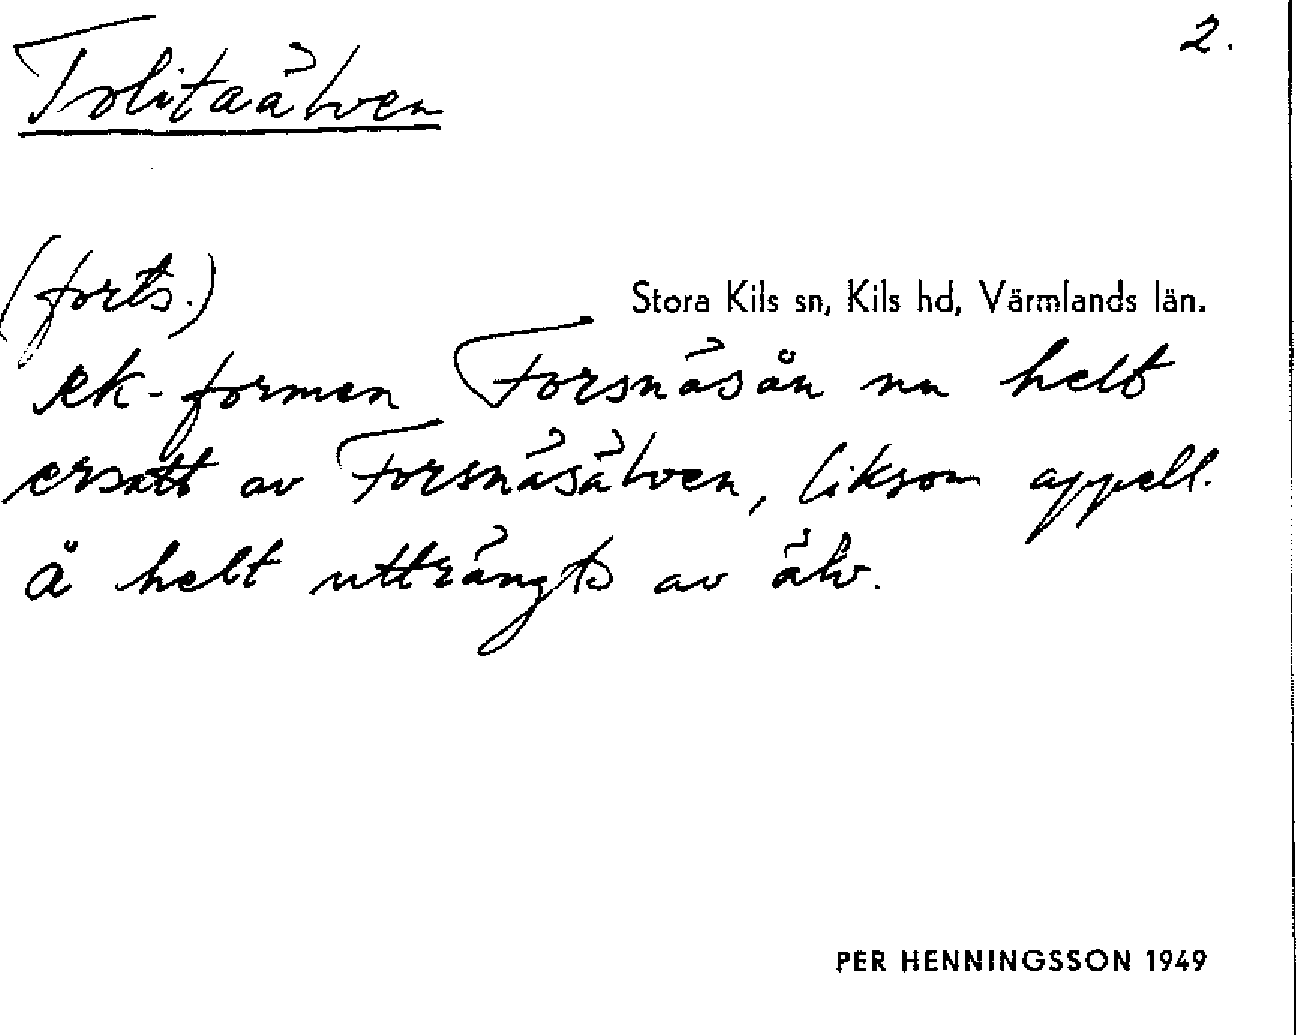 Tolitaälven 2.
(forts.) Stora Kils sn, Kils hd, Värmlands län.
ek-formen Forsnäsån nu helt
ersatt av Forsnäsälven, liksom appell.
å helt utträngts av älv.
PER HENNINGSSON 1949